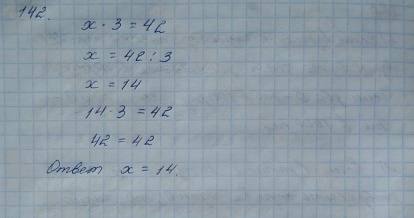 142.
x · 3 = 42
x = 42 : 3
x = 14
14 · 3 = 42
42 = 42
Ответ x = 14.